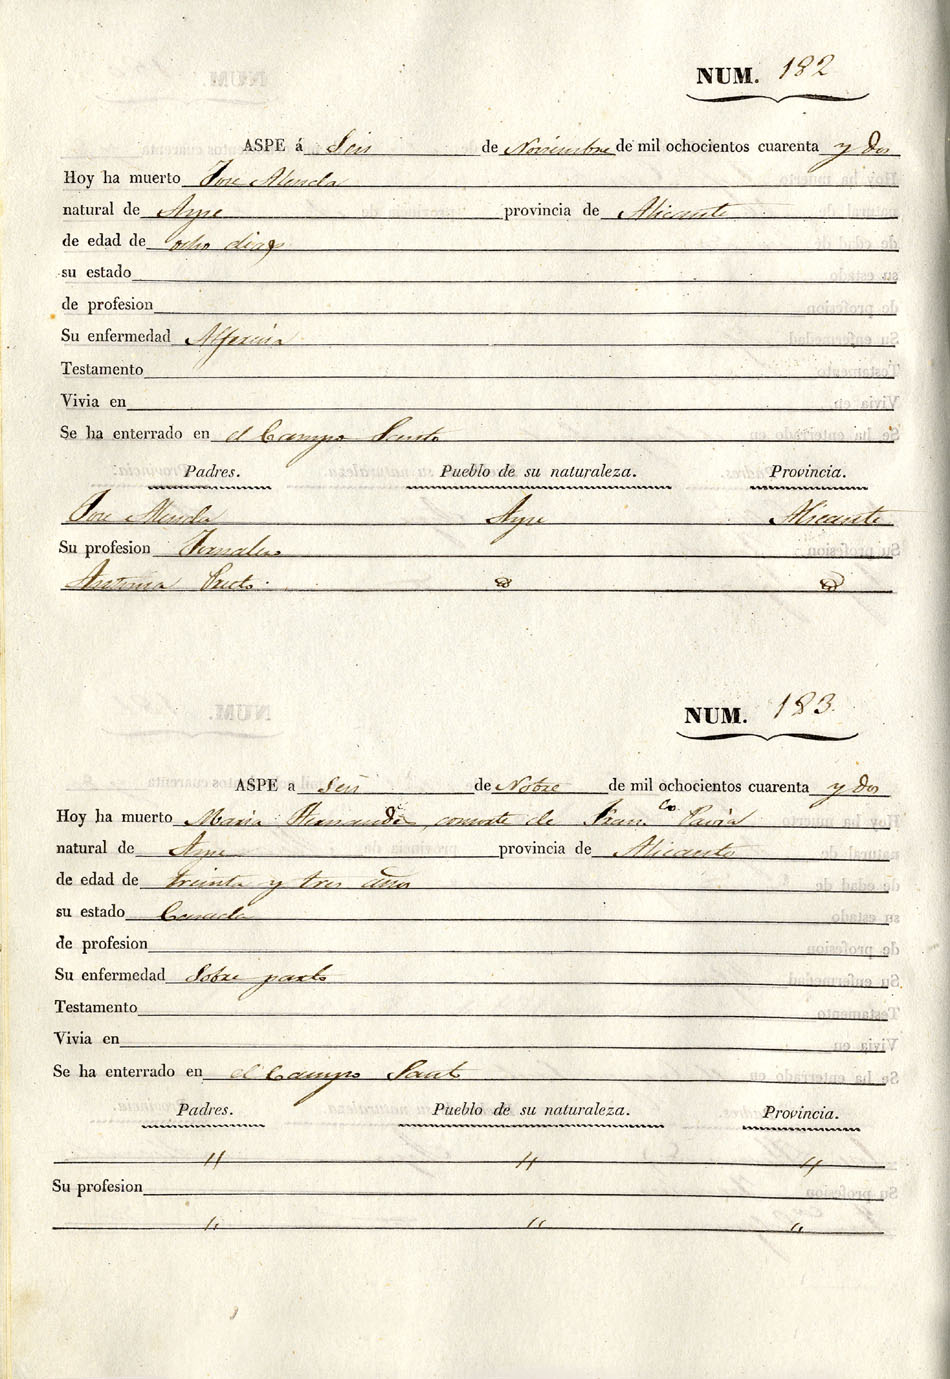 NUM. 182
ASPE á Seis de Noviembre de mil ochocientos cuarenta y dos
Hoy ha muerto Jose Alenda
natural de Aspe provincia de Alicante
de edad de ocho dias
su estado
de profesion
Su enfermedad Alferecia
Testamento
Vivia en
Se ha enterrado en el Campo Santo
Padres. Pueblo de su naturaleza. Provincia.
Jose Alenda Aspe Alicante
Su profesion Jornalero
Antonia Prieto
NUM. 183.
ASPE a Seis de Nobre de mil ochocientos cuarenta y dos
Hoy ha muerto Maria Hernandez consorte de Fran.co Pavia
natural de Aspe provincia de Alicante
de edad de treinta y tres años
su estado Casada
de profesion
Su enfermedad Sobre parto
Testamento
Vivia en
Se ha enterrado en el Campo Santo
Padres. Pueblo de su naturaleza. Provincia.
" " "
Su profesion
" " "